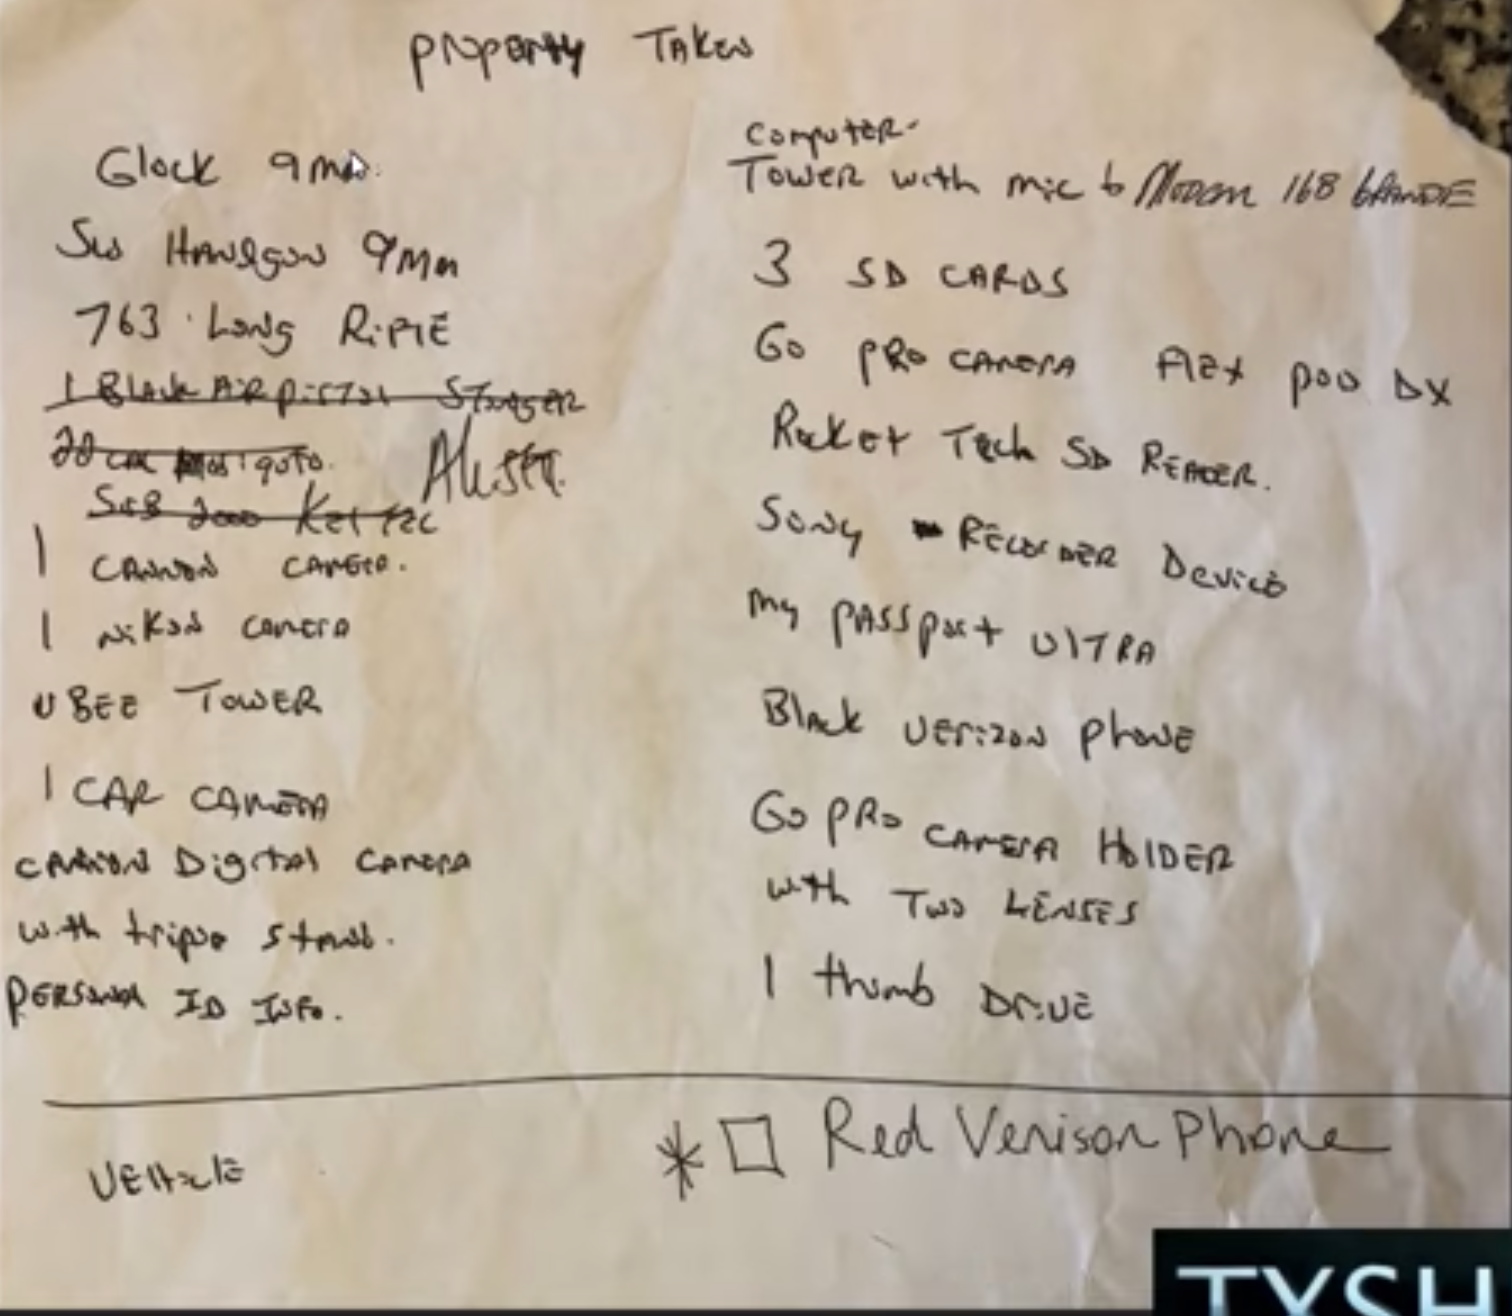 Property Taken
Glock 9mm.
Handgun 9mm
763 Long Rifle
1 Black Air Pistol
20
2000
1 Cannon Camera.
1 Nikon Camera
UBEE Tower
1 Car Camera
Cannon Digital Camera
with tripod stand.
Personal ID Info.
Computer-
Tower with mic to Modem 168
3 SD Cards
Go Pro Camera Flex Pod DX
Rocket Tech SD Reader.
Sony Recorder Device
My Passport Ultra
Black Verizon Phone
Go Pro Camera Holder
with Two Lenses
1 thumb Drive
Vehicle
* Red Verison Phone
TYSH